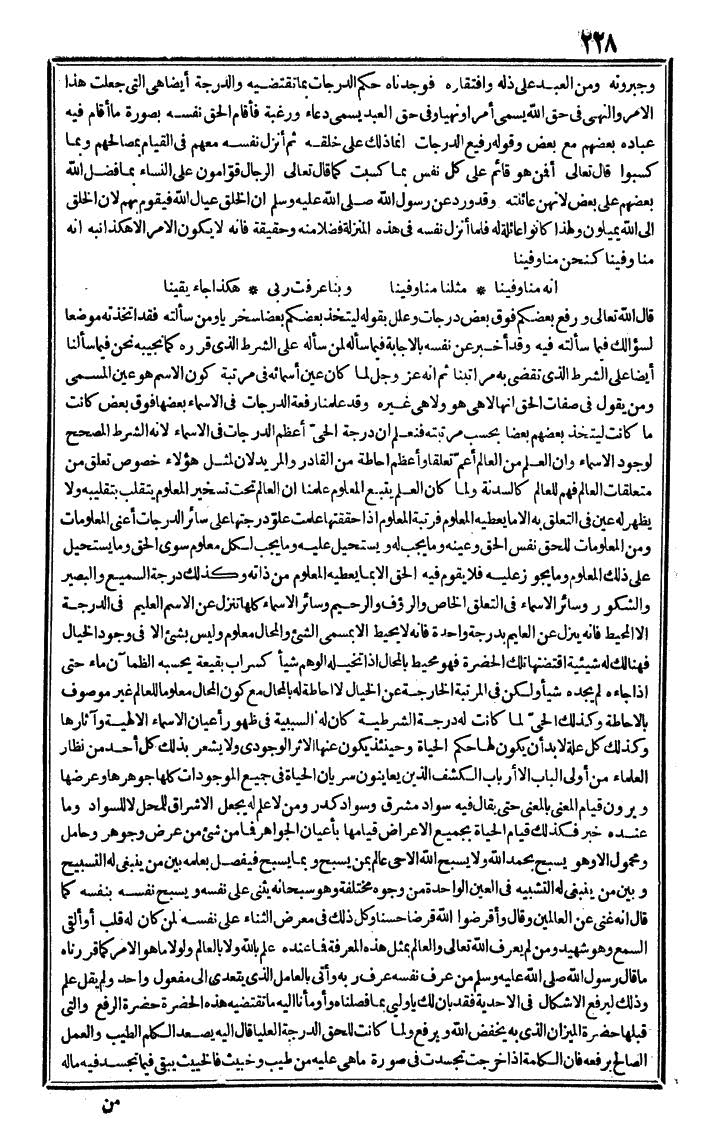 ٢٢٨
وجبروته ومن العبد على ذله وافتقاره فوجدناه حكم الدرجات بما تقتضيه والدرجة أيضا هى التى جعلت هذا
الامر والنهى فى حق الله يسمى أمرا ونهيا وفى حق العبد يسمى دعاء ورغبة فأقام الحق نفسه بصورة ما أقام فيه
عباده بعضهم مع بعض وقوله رفيع الدرجات انما ذلك على خلقه ثم أنزل نفسه معهم فى القيام بمصالحهم وبما
كسبوا قال تعالى أفمن هو قائم على كل نفس بما كسبت كما قال تعالى الرجال قوّامون على النساء بما فضل الله
بعضهم على بعض لانهن عائلته وقد ورد عن رسول الله صلى الله عليه وسلم ان الخلق عيال الله فيقوم بهم لان الخلق
الى الله يميلون ولهذا كانوا عائلة له فلما أنزل نفسه فى هذه المنزلة فضلا منه وحقيقة فانه لا يكون الامر الا هكذا نبه انه
منا وفينا كنحن منا وفينا
انه منا وفينا * مثلنا منا وفينا وبنا عرفت ربى * هكذا جاء يقينا
قال الله تعالى ورفع بعضكم فوق بعض درجات وعلل بقوله ليتخذ بعضكم بعضا سخريا ومن سألته فقد اتخذته موضعا
لسؤالك فيما سألته فيه وقد أخبر عن نفسه بالاجابة فيما سأله لمن سأله على الشرط الذى قرره كما نجيبه نحن فيما سألنا
أيضا على الشرط الذى تقضى به مراتبنا ثم انه عز وجل لما كان عين أسمائه فى مرتبة كون الاسم هو عين المسمى
ومن يقول فى صفات الحق انها لاهى هو ولا هى غيره وقد علمنا رفعة الدرجات فى الاسماء بعضها فوق بعض كانت
ما كانت ليتخذ بعضهم بعضا بحسب مرتبته فنعلم ان درجة الحىّ أعظم الدرجات فى الاسماء لانه الشرط المصحح
لوجود الاسماء وان العلم من العالم أعمّ تعلقا وأعظم احاطة من القادر والمريد لان لمثل هؤلاء خصوص تعلق من
متعلقات العالم فهم للعالم كالسدنة ولما كان العلم يتبع المعلوم علمنا ان العالم تحت تسخير المعلوم يتقلب بتقليبه ولا
يظهر له عين فى التعلق به الا ما يعطيه المعلوم فرتبة المعلوم اذا حققتها علمت علوّ درجتها على سائر الدرجات أعنى المعلومات
ومن المعلومات للحق نفس الحق وعينه وما يجب له ويستحيل عليه وما يجب لكل معلوم سوى الحق وما يستحيل
على ذلك المعلوم وما يجوز عليه فلا يقوم فيه الحق الا بما يعطيه المعلوم من ذاته وكذلك درجة السميع والبصير
والشكور وسائر الاسماء فى التعلق الخاص والرؤف والرحيم وسائر الاسماء كلها تنزل عن الاسم العليم فى الدرجة
الا المحيط فانه ينزل عن العليم بدرجة واحدة فانه لا يحيط الا بمسمى الشئ والمحال معلوم وليس بشئ الا فى وجود الخيال
فهنالك له شيئية اقتضتها تلك الحضرة فهو محيط بالمحال اذا تخيله الوهم شيأ كسراب بقيعة يحسبه الظمآن ماء حتى
اذا جاءه لم يجده شيأ ولكن فى المرتبة الخارجة عن الخيال لا احاطة له بالمحال مع كون المحال معلوما للعالم غير موصوف
بالاحاطة وكذلك الحىّ لما كانت له درجة الشرطية كان له السببية فى ظهور أعيان الاسماء الالهية وآثارها
وكذلك كل علة لابد أن يكون لها حكم الحياة وحينئذ يكون عنها الاثر الوجودى ولا يشعر بذلك كل أحد من نظار
العلماء من أولى الباب الا أرباب الكشف الذين يعاينون سريان الحياة فى جميع الموجودات كلها جوهرها وعرضها
ويرون قيام المعنى بالمعنى حتى يقال فيه سواد مشرق وسواد كدر ومن لا علم له يجعل الاشراق للمحل لا للسواد وما
عنده خبر فكذلك قيام الحياة بجميع الاعراض قيامها بأعيان الجواهر فما من شئ من عرض وجوهر وحامل
ومحمول الا وهو يسبح بحمد الله ولا يسبح الله الا حى عالم بمن يسبح وبما يسبح فيفصل بعلمه بين من ينبغى له التسبيح
وبين من ينبغى له التشبيه فى العين الواحدة من وجوه مختلفة وهو سبحانه يثنى على نفسه ويسبح نفسه بنفسه كما
قال انه غنى عن العالمين وقال وأقرضوا الله قرضا حسنا وكل ذلك فى معرض الثناء على نفسه لمن كان له قلب أو ألقى
السمع وهو شهيد ومن لم يعرف الله تعالى والعالم بمثل هذه المعرفة فما عنده علم بالله ولا بالعالم ولولا ما هو الامر كما قررناه
ما قال رسول الله صلى الله عليه وسلم من عرف نفسه عرف ربه وأتى بالعامل الذى يتعدى الى مفعول واحد ولم يقل علم
وذلك ليرفع الاشكال فى الاحدية فقد بان لك ياوليى بما فصلناه وأومأنا اليه ما تقتضيه هذه الحضرة حضرة الرفع والتى
قبلها حضرة الميزان الذى به يخفض الله ويرفع ولما كانت للحق الدرجة العليا قال اليه يصعد الكلم الطيب والعمل
الصالح يرفعه فان الكلمة اذا خرجت تجسدت فى صورة ما هى عليه من طيب وخبيث فالخبيث يبقى فيما تجسد فيه ماله
من